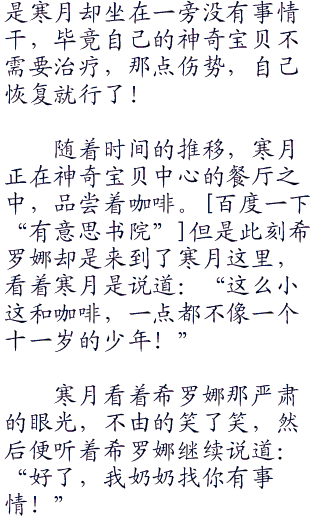 是寒月却坐在一旁没有事情
干，毕竟自己的神奇宝贝不
需要治疗，那点伤势，自己
恢复就行了！
随着时间的推移，寒月
正在神奇宝贝中心的餐厅之
中，品尝着咖啡。[百度一下
“有意思书院”]但是此刻希
罗娜却是来到了寒月这里，
看着寒月是说道：“这么小
这和咖啡，一点都不像一个
十一岁的少年！”
寒月看着希罗娜那严肃
的眼光，不由的笑了笑，然
后便听着希罗娜继续说道：
“好了，我奶奶找你有事
情！”